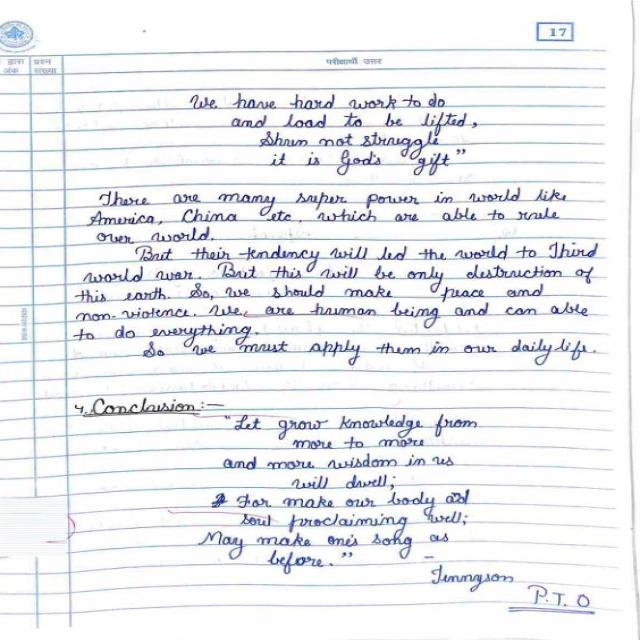 17
द्वारा प्रश्न परीक्षार्थी उत्तर
अंक संख्या
We have hard work to do
and load to be lifted,
Shun not struggle
it is God's gift"
There are many super power in world like
America, China etc. which are able to rule
over world.
But their tendency will led the world to Third
world war. But this will be only destruction of
this earth. So, we should make peace and
non-violence. We, are human being and can able
to do everything.
So we must apply them in our daily life.
4. Conclusion :-
"Let grow knowledge from
more to more
and more wisdom in us
will dwell;
For make our body and
soul proclaiming well;
May make one's song as
before."
- Tennyson
P.T.O